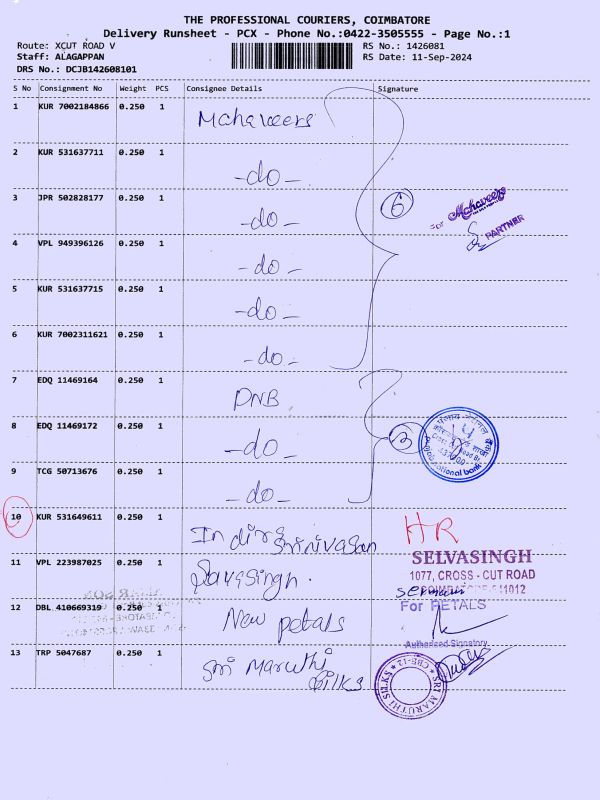 THE PROFESSIONAL COURIERS, COIMBATORE
Delivery Runsheet - PCX - Phone No.:0422-3505555 - Page No.:1
Route: XCUT ROAD V RS No.: 1426081
Staff: ALAGAPPAN RS Date: 11-Sep-2024
DRS No.: DCJB142608101
S No Consignment No Weight PCS Consignee Details Signature
1 KUR 7002184866 0.250 1 Mahaveers
2 KUR 531637711 0.250 1 -do-
3 JPR 502828177 0.250 1 -do- 6 For Mahaveers
PARTNER
4 VPL 949396126 0.250 1 -do-
5 KUR 531637715 0.250 1 -do-
6 KUR 7002311621 0.250 1 -do-
7 EDQ 11469164 0.250 1 PNB
8 EDQ 11469172 0.250 1 -do- 3
punjab national bank
9 TCG 50713676 0.250 1 -do-
10 KUR 531649611 0.250 1 Indira Srinivasan HR
11 VPL 223987025 0.250 1 Savisingh. SELVASINGH
1077, CROSS - CUT ROAD
COIMBATORE-641012
12 DBL 410669319 0.250 1 New petals For PETALS
Authorised Signatory
13 TRP 5047687 0.250 1 Sri Maruthi
Silks SRI MARUTHI SILKS * CBE-12 *